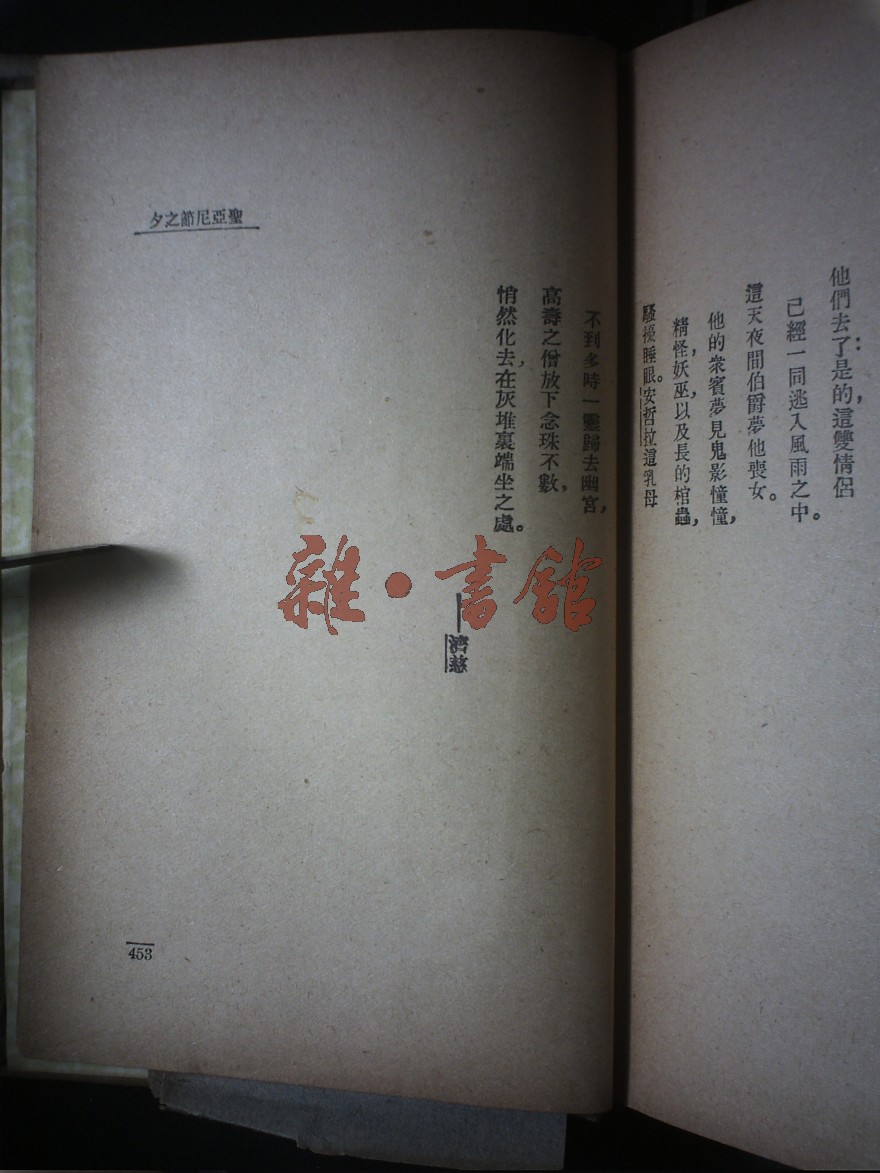 他們去了：是的，這雙情侶
已經一同逃入風雨之中。
這天夜間伯爵夢他喪女。
他的衆賓夢見鬼影憧憧，
精怪，妖巫，以及長的棺蟲，
騷擾睡眼。安哲拉這乳母
不到多時一靈歸去幽宮，
高壽之僧放下念珠不數，
悄然化去，在灰堆裏端坐之處。
—濟慈
聖亞尼節之夕
453
雜·書館